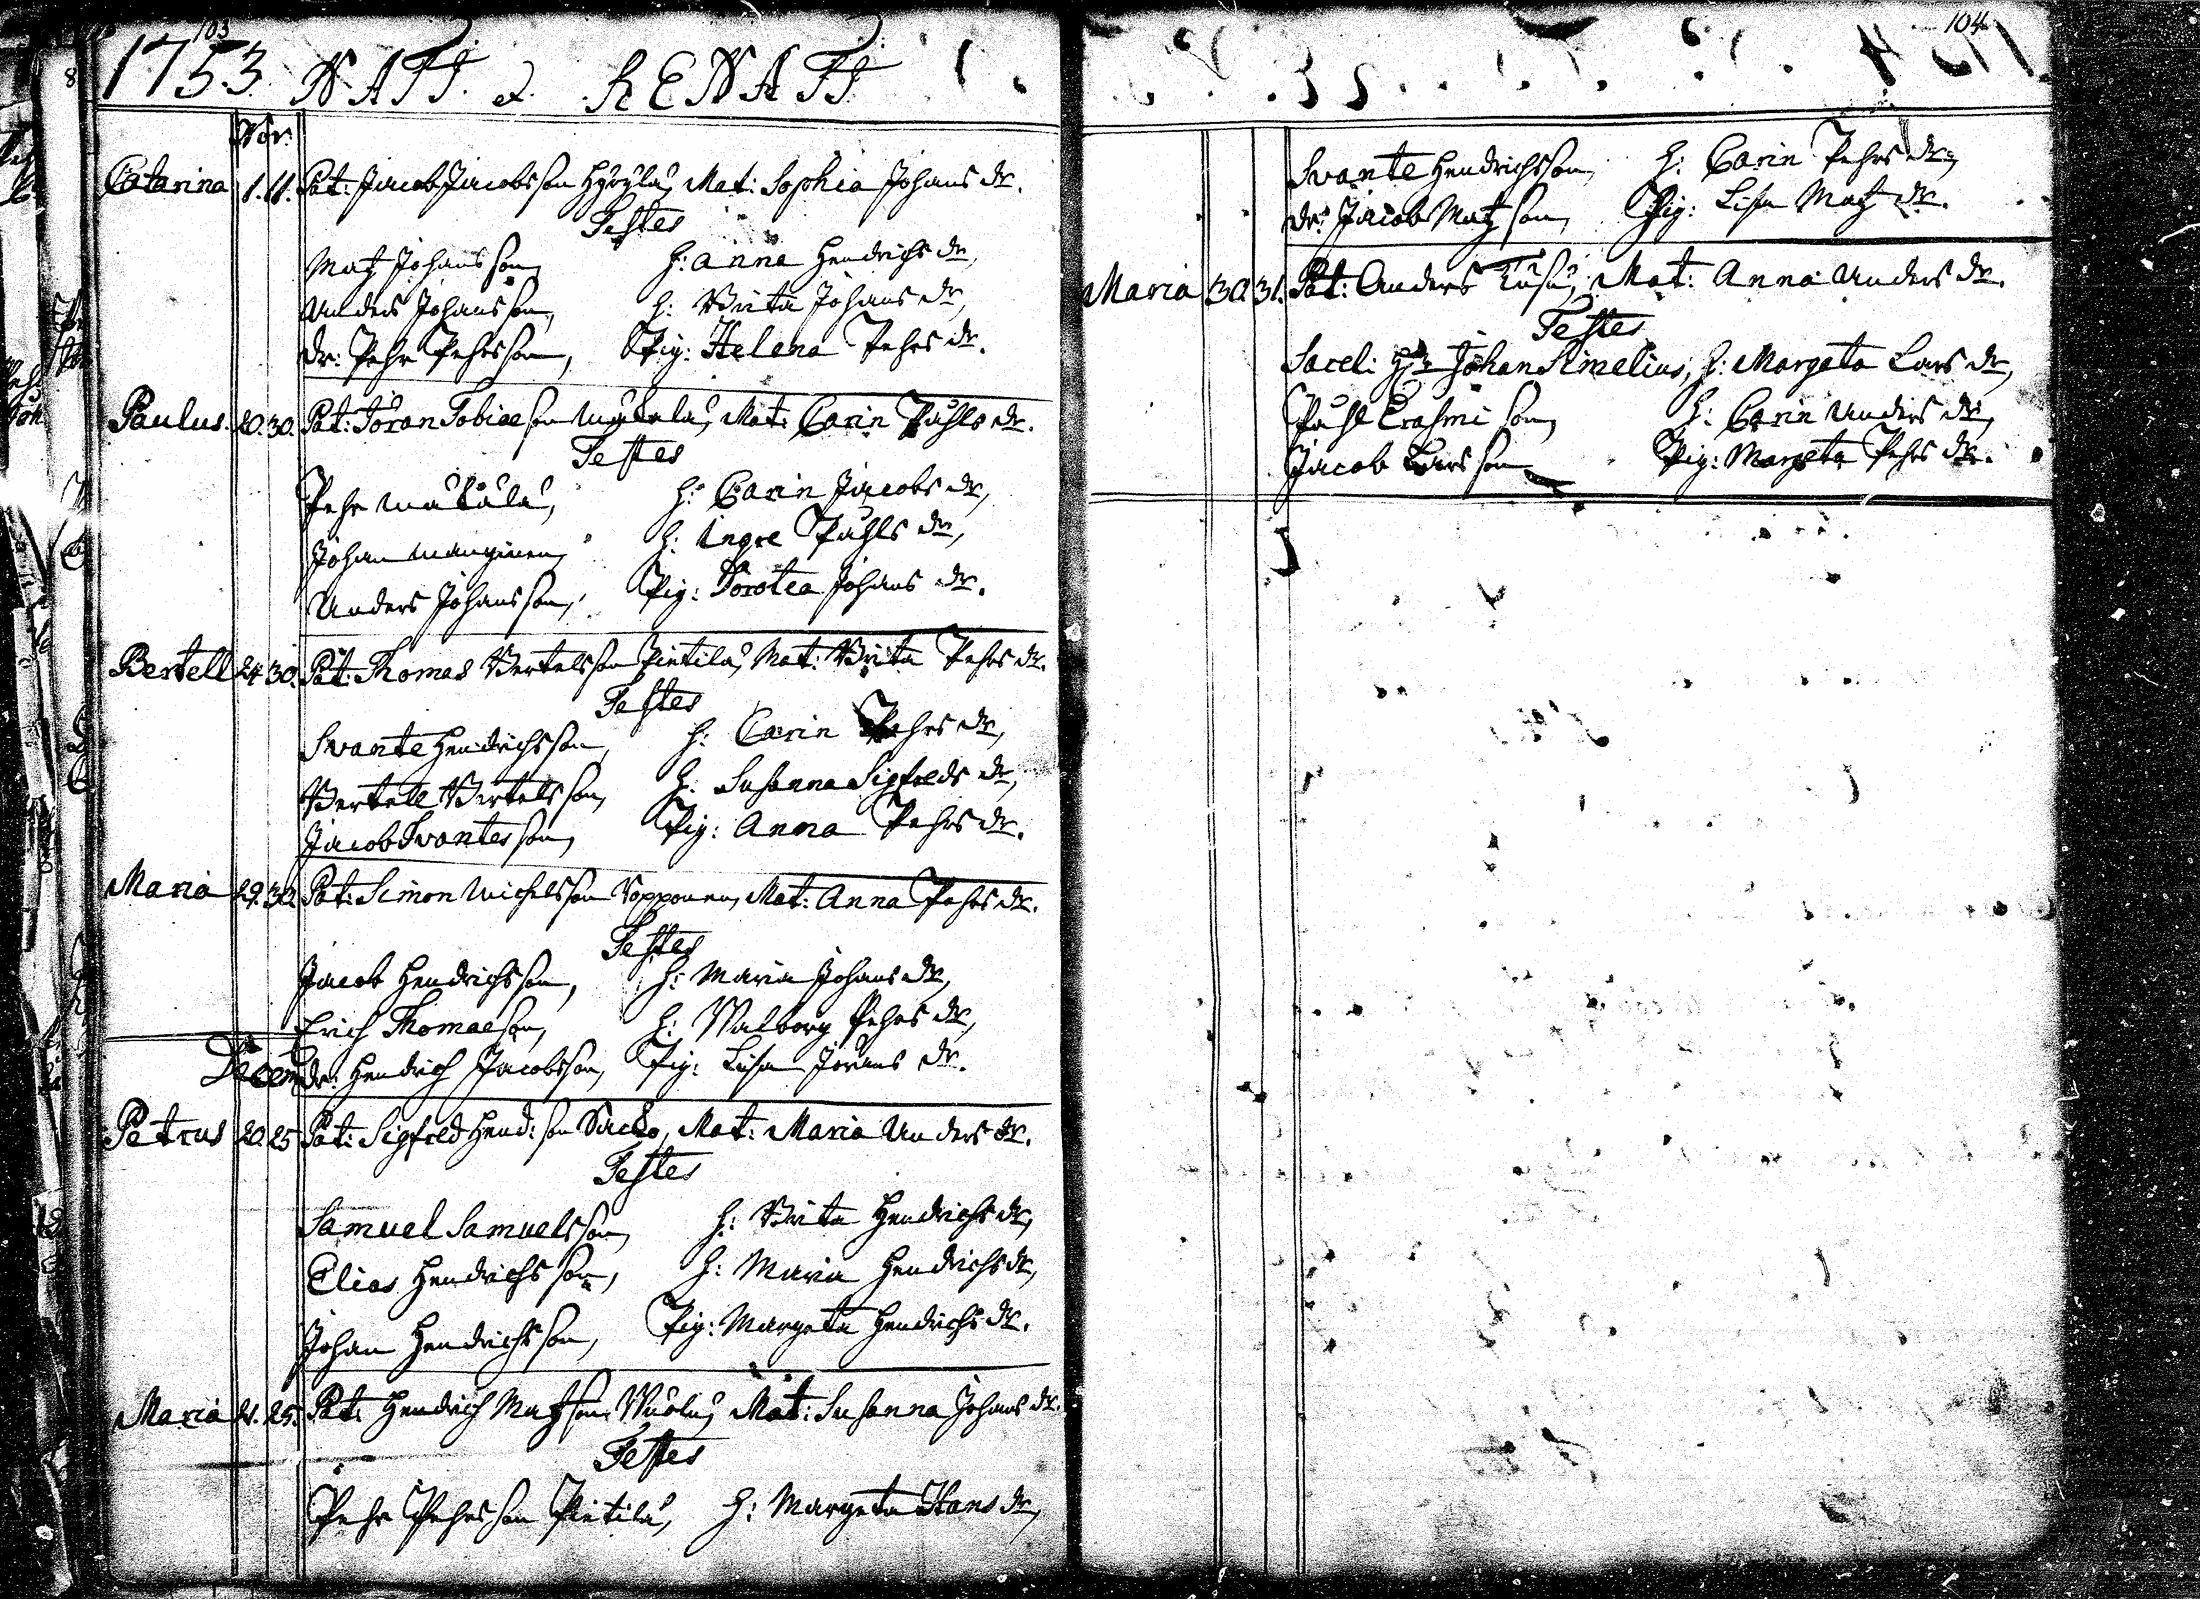 103
1753 NATI & RENATI
Nov:
Catarina 1. 11. Pat: Jacob Jacobsson Hyöÿlä, Mat: Sophia Johans dr.
Testes
Matz Johansson, h: Anna Hendrichs dr,
Anders Johansson, h: Brita Johans dr,
dr: Pehr Pehrsson, Pig: Helena Pehrs dr.
Paulus. 20. 30. Pat: Jöran Tobiaeson Mykälä, Mat: Carin Påhls dr.
Testes
Pehr Mäkälä, h: Carin Jacobs dr,
Johan Manginen, h: Ingre Påhls dr,
Anders Johansson, Pig: Dorotea Johans dr.
Bertell 24. 30. Pat: Thomas Bertelsson Pietilä, Mat: Brita Pehrs dr.
Testes
Svante Hendrichsson, h: Carin Pehrs dr,
Bertell Bertelsson, h: Susanna Sigfreds dr,
Jacob Svantesson, Pig: Anna Pehrs dr.
Maria 29. 30. Pat: Simon Michelsson Sopponen, Mat: Anna Pehrs dr.
Testes
Jacob Hendrichsson, h: Maria Johans dr,
Erich Thomaeson, h: Walborg Pehrs dr,
Decem dr: Hendrich Jacobsson, Pig: Lisa Jörans dr.
Petrus 20. 25 Pat: Sigfred Hend: son Sacko, Mat: Maria Anders dr.
Testes
Samuel Samuelsson, h: Brita Hendrichs dr,
Elias Hendrichsson, h: Maria Hendrichs dr,
Johan Hendrichsson, Pig: Margeta Hendrichs dr.
Maria 21. 25. Pat: Hendrich Matzson Wuola, Mat: Susanna Johans dr.
Testes
Pehr Pehrsson Pietilä, h: Margeta Hans dr,
104
Svante Hendrichsson, h: Carin Pehrs dr,
dr: Jacob Matzson, Pig: Lisa Matz dr.
Maria 30. 31. Pat: Anders Mat: Anna Anders dr.
Testes
Sacell: Hr Johan Simelius, h: Margeta Lars dr,
Påhl Erasmi son, h: Carin Anders dr,
Jacob Larsson Pig: Margeta Pehrs dr.